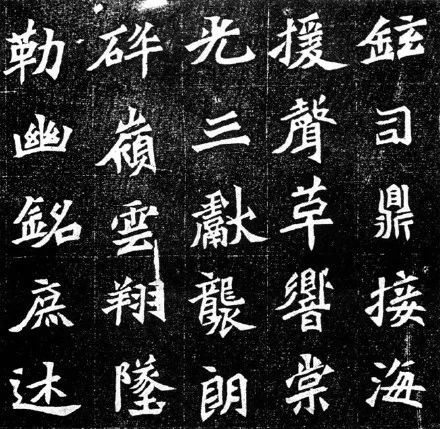 鉉司鼎接海
援聲草響棠
光三獻襲朗
砕嶺雲翔墜
勒幽銘庶述